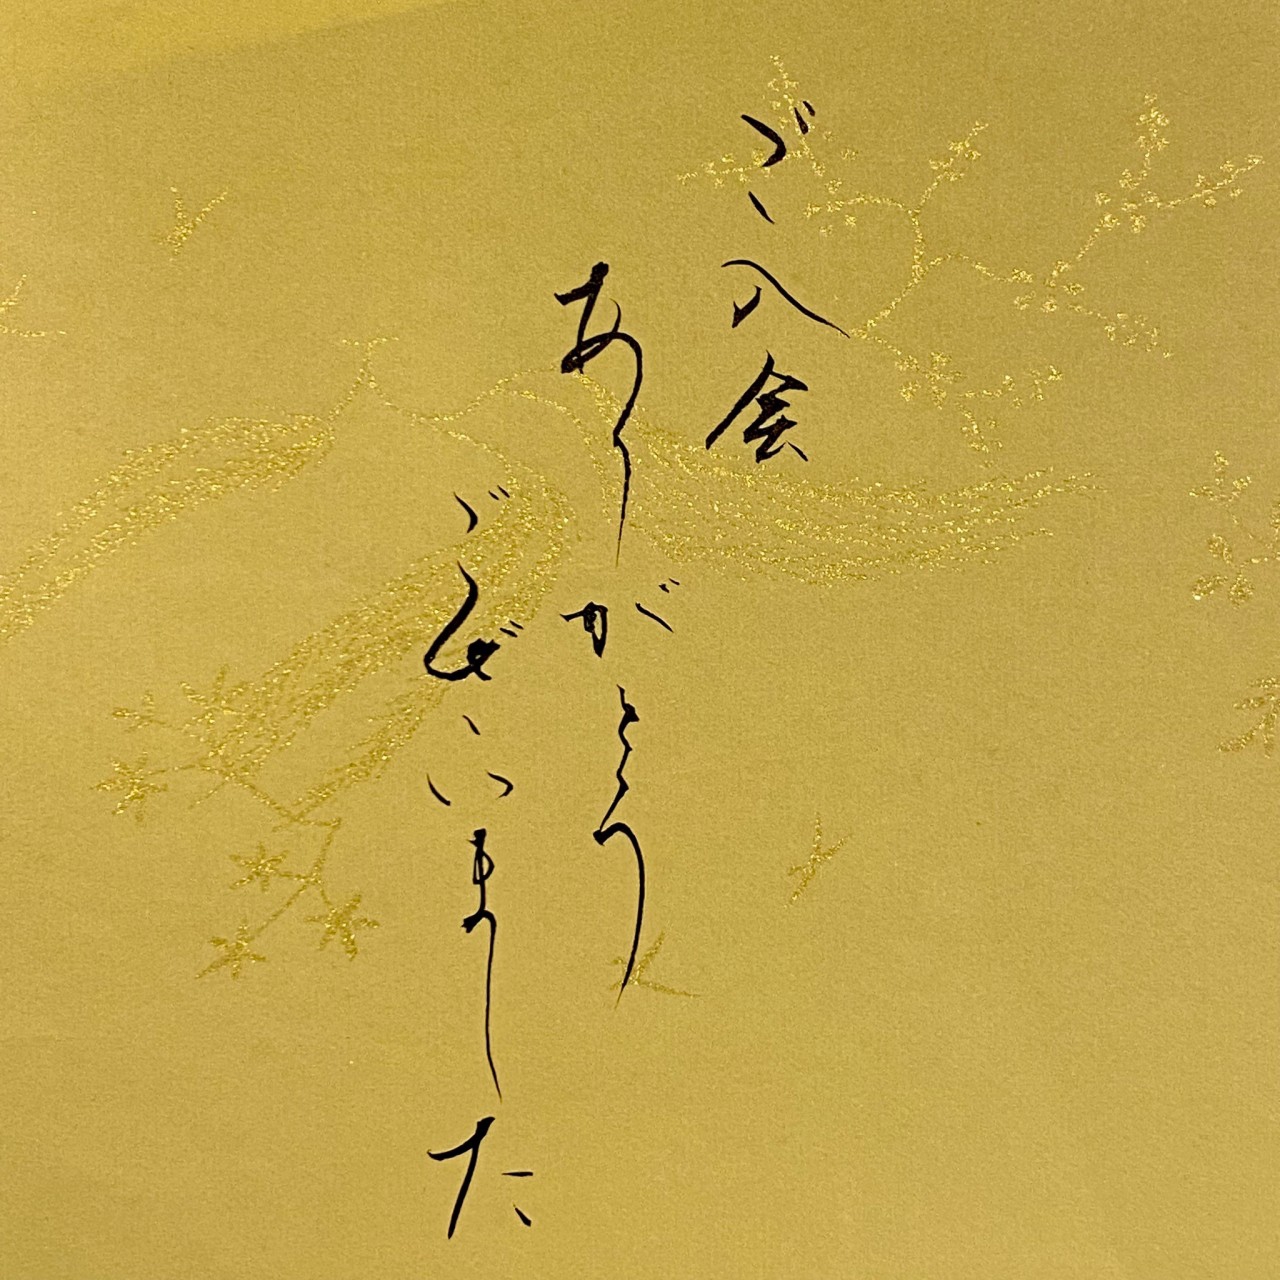 ご入会
ありがとう
ございました